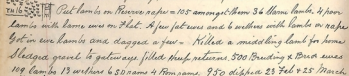 TH 16 Put lambs on Reserve rape = 105 amongst them 36 Name lamb, 4 poor
lambs with lame ewe on Flat. A few fat ewes and 6 wethers with lambs on rape
Got in ewe lambs and dagged a few – Killed a middling lamb for home
Sledged gravel to gateways filled sheep returns 500 Breeding & Bred ewes
109 lambs 13 wethers 6 SD rams 4 Rom rams 950 dipped 23 Feb & 25 March